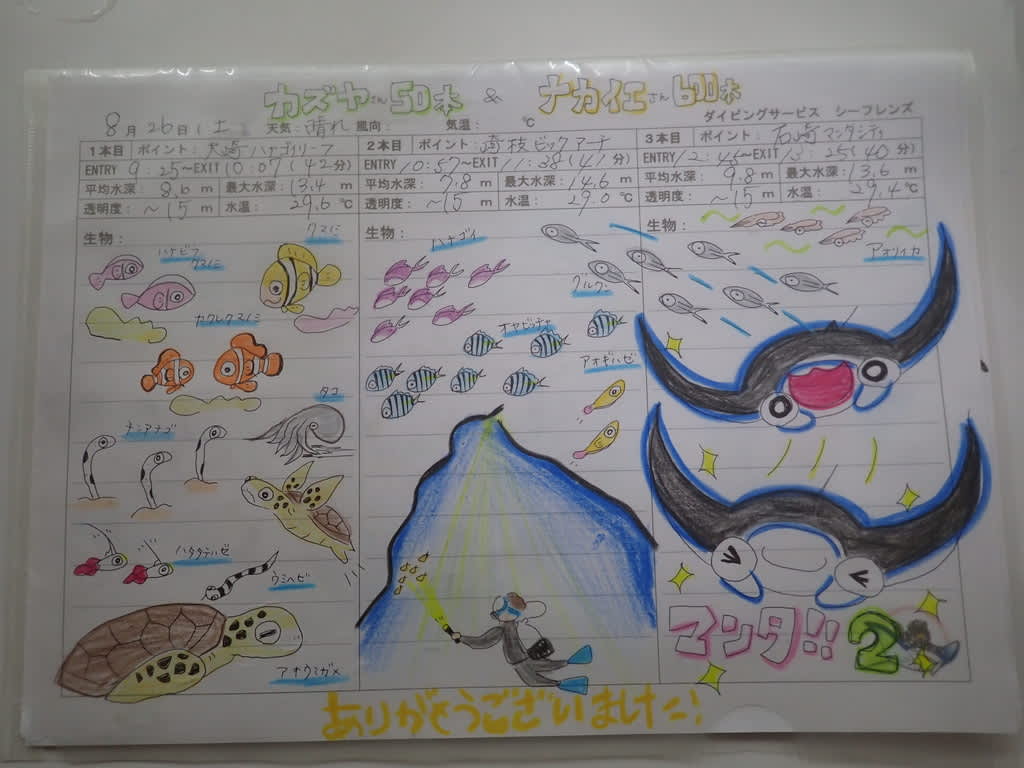 カズヤさん50本 & ナカイエさん600本
ダイビングサービス シーフレンズ
8月26日(土) 天気: 晴れ 風向: 気温: ℃
1本目 ポイント: 大崎ハナゴイリーフ
ENTRY 9:25〜EXIT 10:07 (42分)
平均水深: 8.6 m 最大水深: 13.4 m
透明度: 〜15 m 水温: 29.6 ℃
生物:
クマノミ
ハナビラクマノミ
カクレクマノミ
タコ
チンアナゴ
ハタタテハゼ
ウミヘビ
アオウミガメ
2本目 ポイント: 南枝ビックアーチ
ENTRY 10:57〜EXIT 11:38 (41分)
平均水深: 7.8 m 最大水深: 14.6 m
透明度: 〜15 m 水温: 29.0 ℃
生物:
ハナゴイ
グルクン
オヤビッチャ
アオギハゼ
3本目 ポイント: 石崎マンタシティ
ENTRY 12:45〜EXIT 13:25 (40分)
平均水深: 9.8 m 最大水深: 13.6 m
透明度: 〜15 m 水温: 29.4 ℃
生物:
アオリイカ
マンタ!! 2
ありがとうございました!